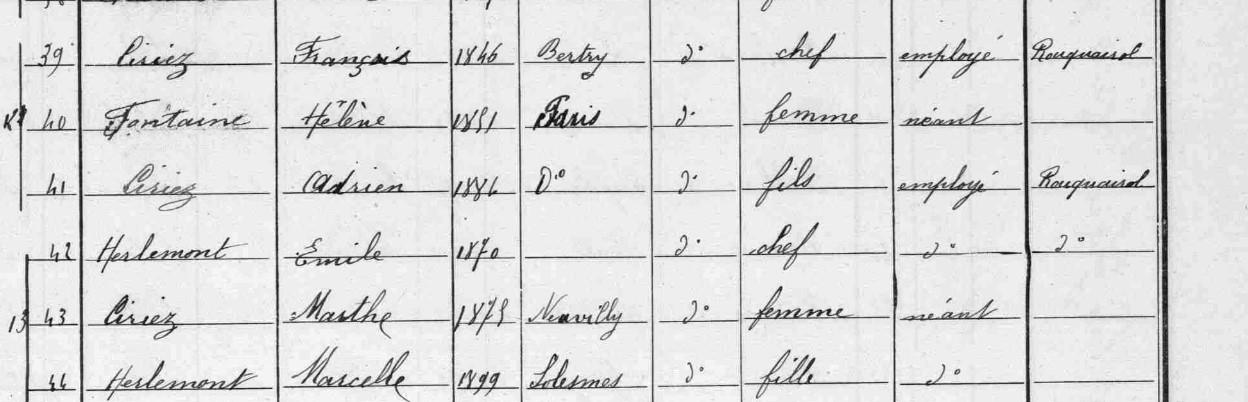 39 Ciriez François 1846 Bertry d° chef employé Rouquairol
40 Fontaine Hélène 1851 Paris d° femme néant
41 Ciriez Adrien 1886 D° d° fils employé Rouquairol
42 Herlemont Emile 1870 d° chef d° d°
13 43 Ciriez Marthe 1875 Neuvilly d° femme néant
44 Herlemont Marcelle 1899 Solesmes d° fille d°